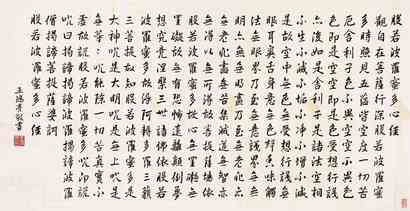 般若波羅蜜多心經
觀自在菩薩行深般若波羅蜜
多時照見五蘊皆空度一切苦
厄舍利子色不異空空不異色
色即是空空即是色受想行識
亦復如是舍利子是諸法空相
不生不滅不垢不淨不增不減
是故空中無色無受想行識無
眼耳鼻舌身意無色聲香味觸
法無眼界乃至無意識界無無
明亦無無明盡乃至無老死亦
無老死盡無苦集滅道無智亦
無得以無所得故菩提薩埵依
般若波羅蜜多故心無罣礙無
罣礙故無有恐怖遠離顛倒夢
想究竟涅槃三世諸佛依般若
波羅蜜多故得阿耨多羅三藐
三菩提故知般若波羅蜜多是
大神咒是大明咒是無上咒是
無等等咒能除一切苦真實不
虛故說般若波羅蜜多咒即說
咒曰揭諦揭諦波羅揭諦波羅
僧揭諦菩提薩婆訶
般若波羅蜜多心經
敬書